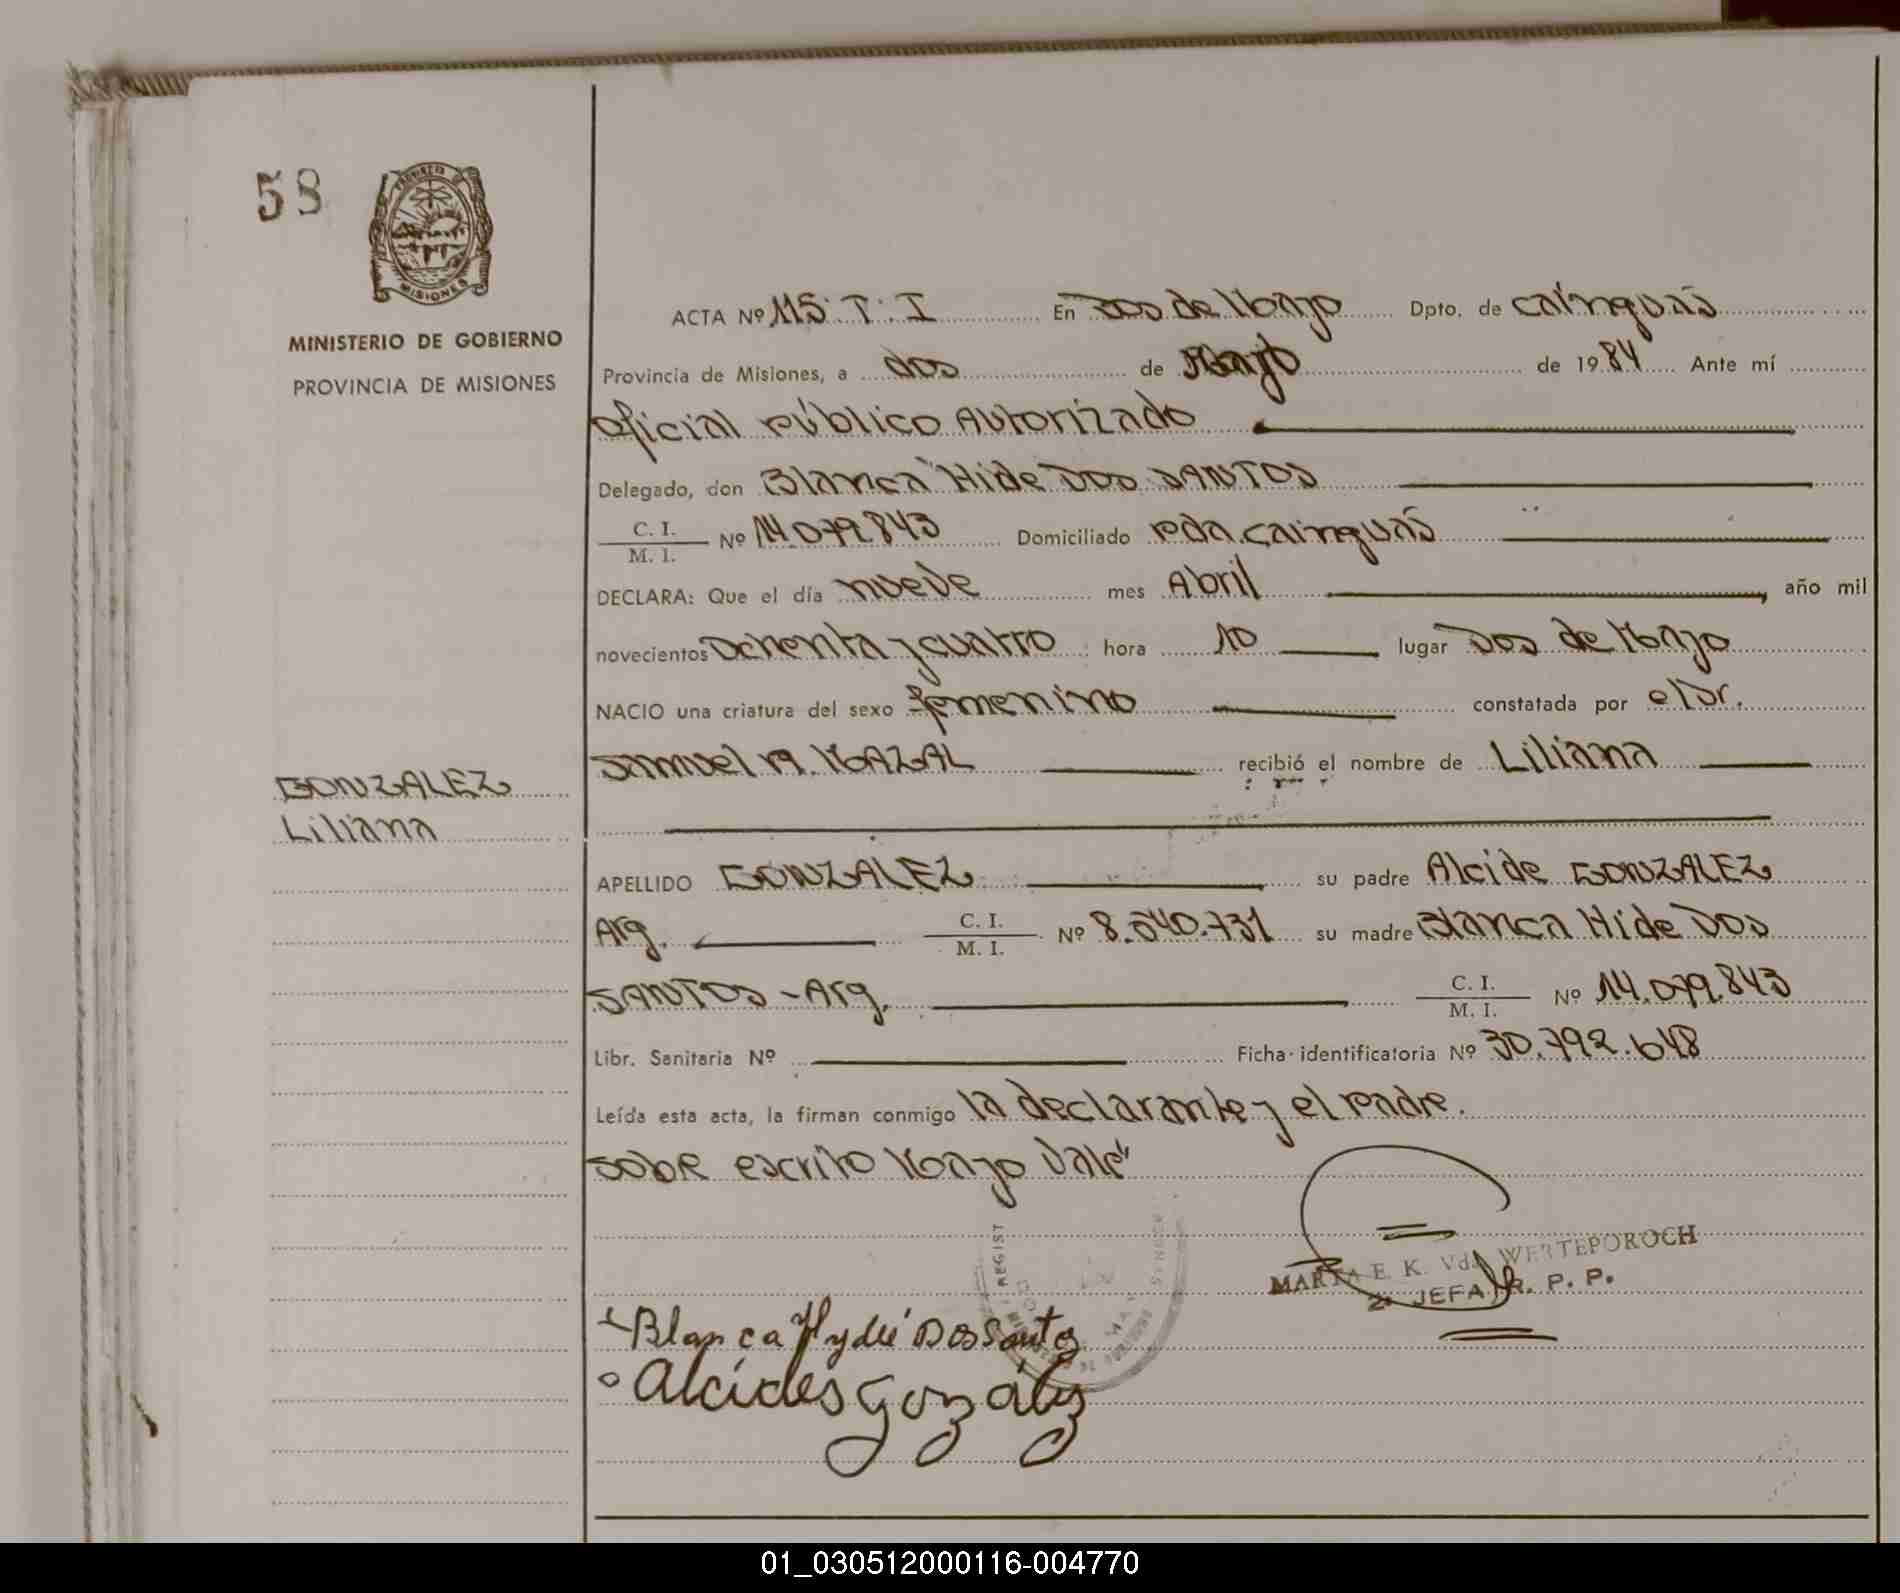 58
MISIONES
MINISTERIO DE GOBIERNO
PROVINCIA DE MISIONES
ACTA Nº 115. T. I En Dos de Mayo Dpto. de Cainguás
Provincia de Misiones, a dos de Mayo de 1984 Ante mí
Oficial Público Autorizado
Delegado, don Blanca Hide DOS SANTOS
C. I.
M. I. Nº 14.079.843 Domiciliado Pda. Cainguás
DECLARA: Que el día nueve mes Abril año mil
novecientos ochenta y cuatro hora 10 lugar Dos de Mayo
NACIO una criatura del sexo femenino constatada por el Dr.
Samuel A. MAZAL recibió el nombre de Liliana
GONZALEZ
Liliana
APELLIDO GONZALEZ su padre Alcide GONZALEZ
Arg. C. I.
M. I. Nº 8.540.731 su madre Blanca Hide DOS
SANTOS - Arg. C. I.
M. I. Nº 14.079.843
Libr. Sanitaria Nº Ficha identificatoria Nº 30.792.648
Leída esta acta, la firman conmigo la declarante y el padre.
Sobre escrito Mayo Vale"
MARTA E. K. Vda. WERTEPOROCH
JEFA R. P. P.
Blanca Hydeé Dos Santos
Alcides Gonzáles
01_030512000116-004770